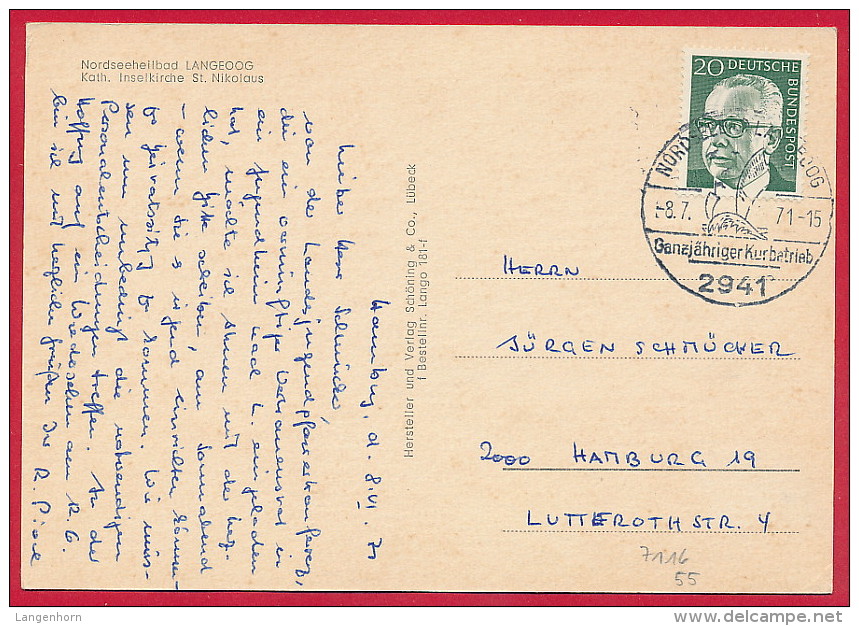 Nordseeheilbad LANGEOOG
Kath. Inselkirche St. Nikolaus
Hamburg, d. 8. VI. 71
Lieber Herr Schmücker,
von der Landesjugendpfarrerkonferenz,
die ein vernünftiges Vertrauensrat in
ein Jugendheim nach L. eingeladen
hat, möchte ich Ihnen mit der herz-
lichen Bitte schreiben, am Sonnabend
- wenn Sie's irgend einrichten können -
zu kommen. Wir müs-
sen nun unbedingt die notwendigen
Personalentscheidungen treffen. In der
Hoffnung auf ein Wiedersehen am 12. 6.
bin ich mit herzlichen Grüßen Ihr R.
Hersteller und Verlag Schöning & Co., Lübeck
f Bestellnr. Lango 181-f
20 DEUTSCHE BUNDESPOST
NORDSEEBAD LANGEOOG
-8.7. 71-15
Ganzjähriger Kurbetrieb
2941
HERRN
JÜRGEN SCHMÜCKER
2000 HAMBURG 19
LUTTEROTHSTR. 4
7116
55
Langenhorn
delcampe.net